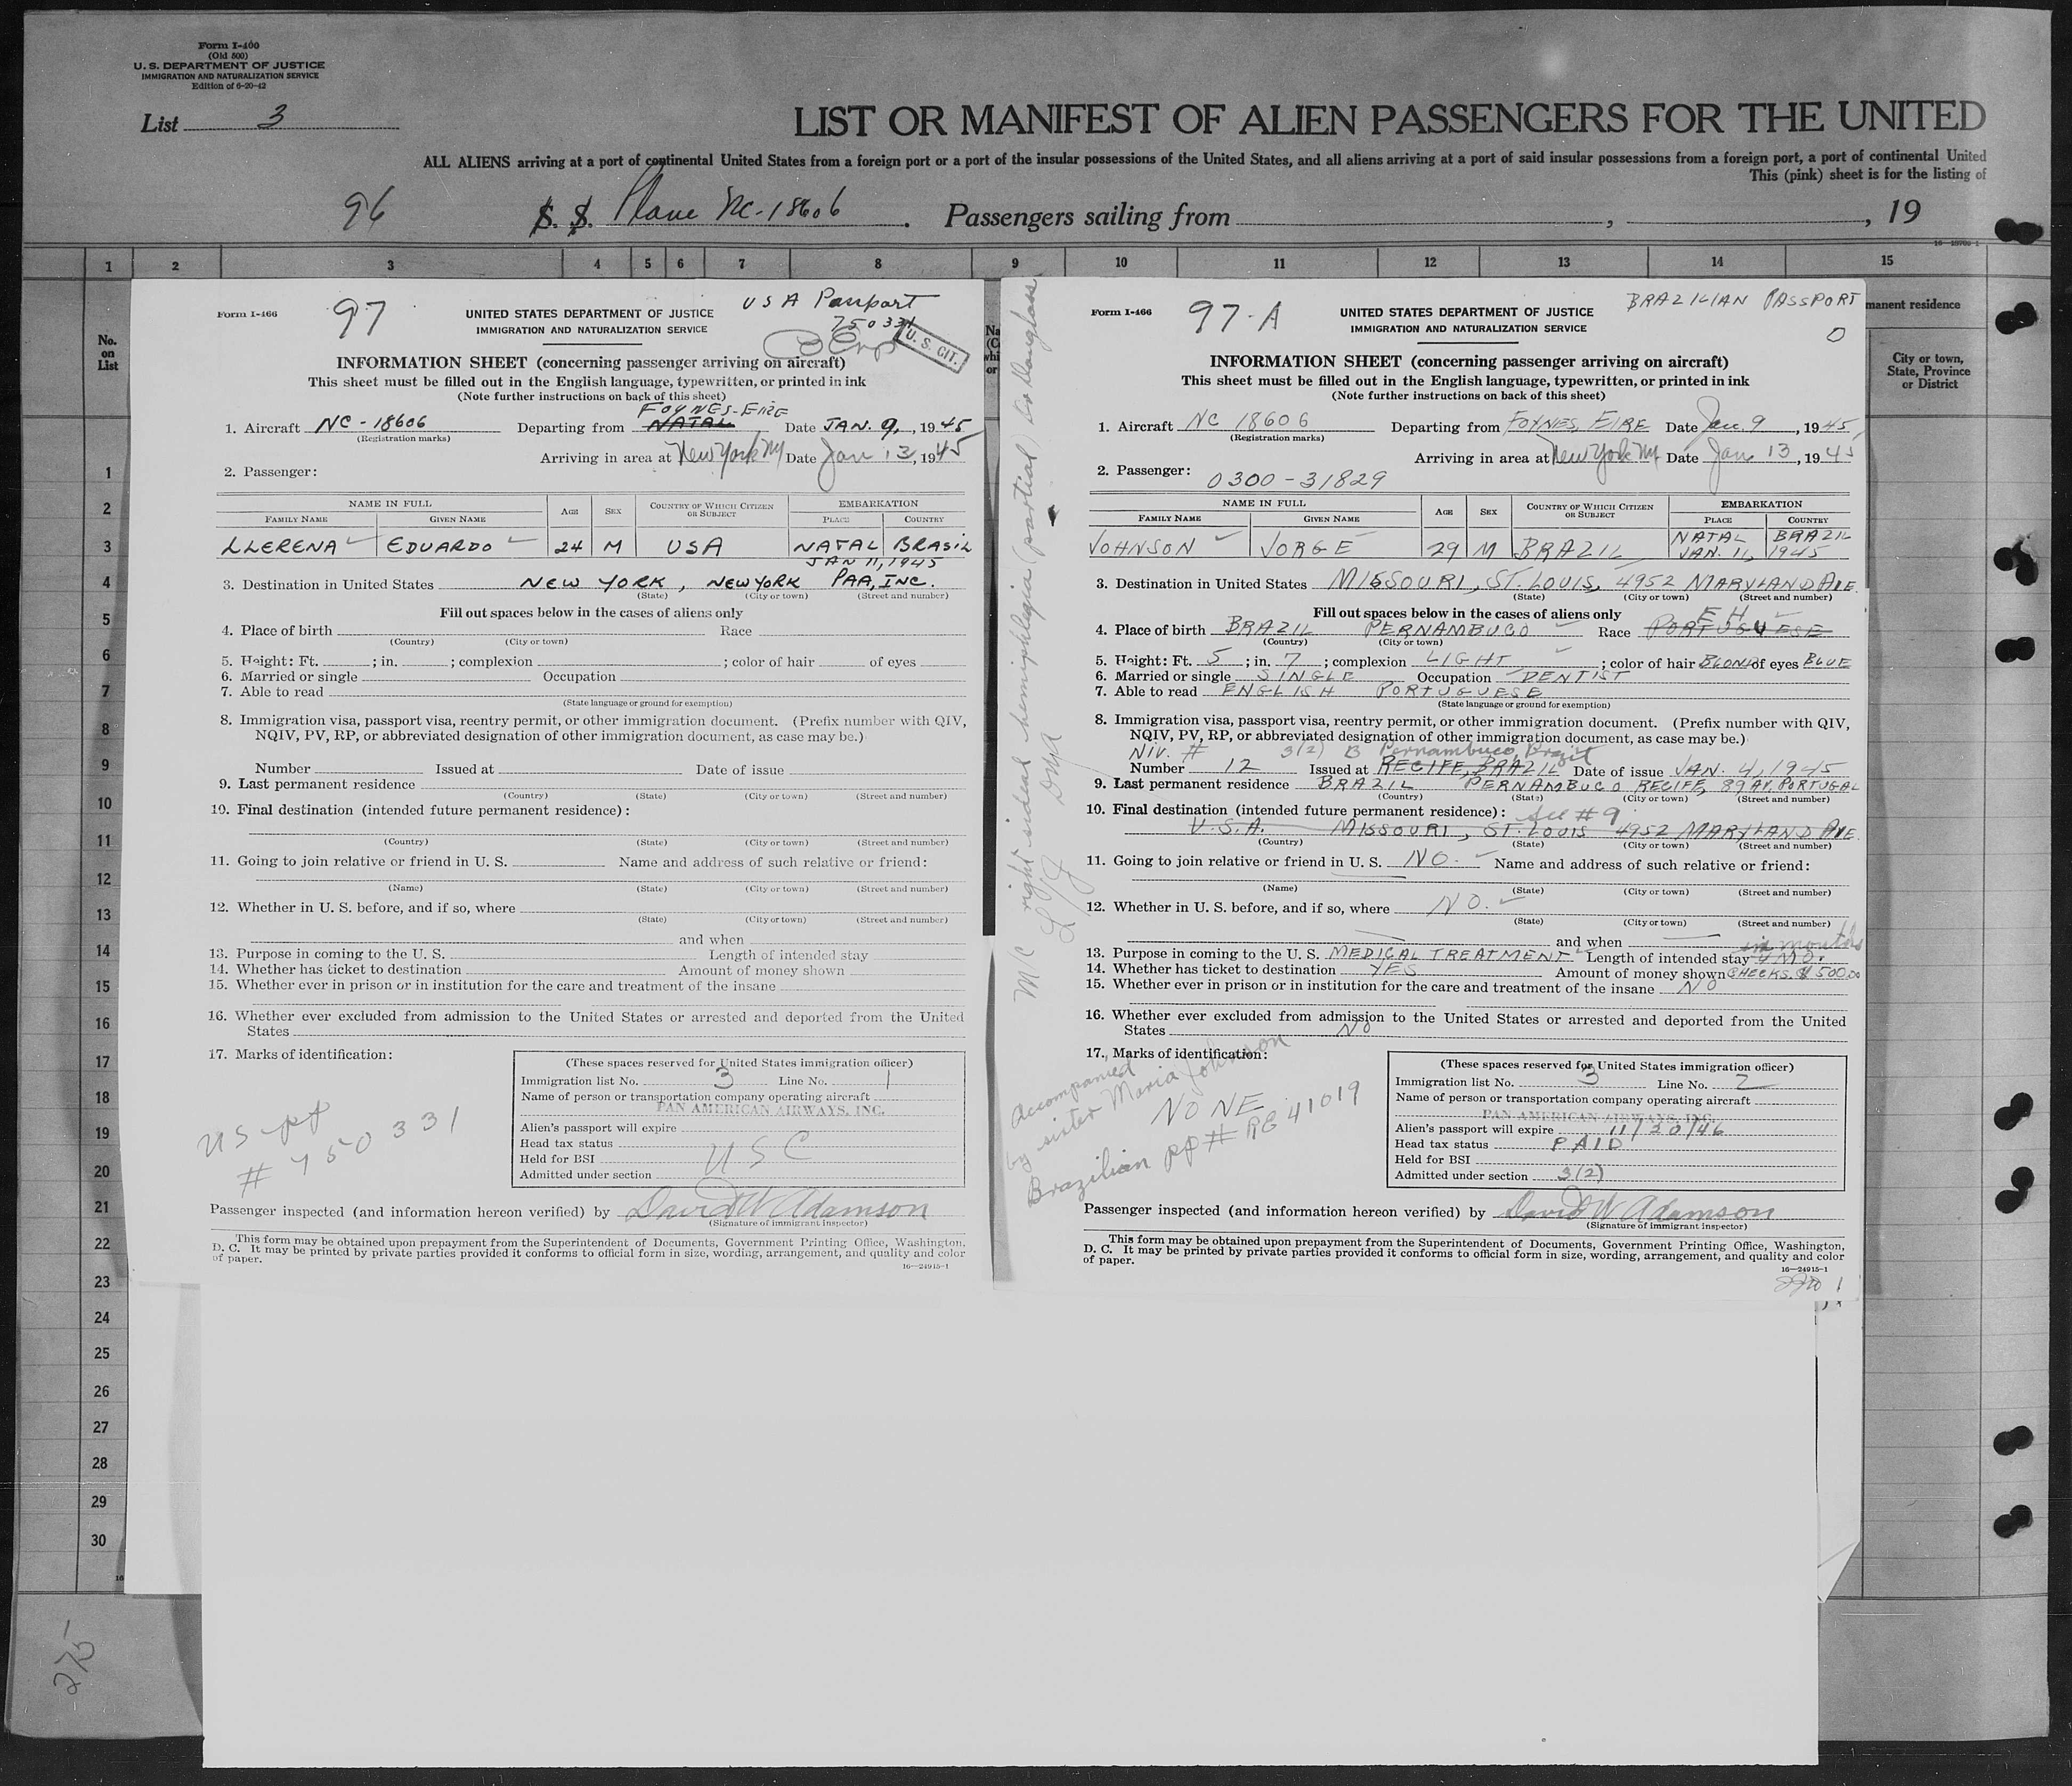 Form I-400
(Old 500)
U. S. DEPARTMENT OF JUSTICE
IMMIGRATION AND NATURALIZATION SERVICE
Edition of 6-20-42
List 3
LIST OR MANIFEST OF ALIEN PASSENGERS FOR THE UNITED
ALL ALIENS arriving at a port of continental United States from a foreign port or a port of the insular possessions of the United States, and all aliens arriving at a port of said insular possessions from a foreign port, a port of continental United
This (pink) sheet is for the listing of
96 S. S. Plane NC-18606. Passengers sailing from , , 19
1 2 3 4 5 6 7 8 9 10 11 12 13 14 15
No. on List
manent residence
City or town, State, Province or District
1
2
3
4
5
6
7
8
9
10
11
12
13
14
15
16
17
18
19
20
21
22
23
24
25
26
27
28
29
30
275
Form I-466
97
UNITED STATES DEPARTMENT OF JUSTICE
IMMIGRATION AND NATURALIZATION SERVICE
USA Passport
750331
U. S. CIT.
INFORMATION SHEET (concerning passenger arriving on aircraft)
This sheet must be filled out in the English language, typewritten, or printed in ink
(Note further instructions on back of this sheet)
FOYNES-EIRE
1. Aircraft NC-18606 Departing from NATAL Date JAN. 9, 1945
(Registration marks)
Arriving in area at New York NY Date Jan 13, 1945
2. Passenger:
NAME IN FULL AGE SEX COUNTRY OF WHICH CITIZEN OR SUBJECT EMBARKATION
FAMILY NAME GIVEN NAME PLACE COUNTRY
LLERENA EDUARDO 24 M USA NATAL BRASIL
JAN 11, 1945
3. Destination in United States NEW YORK, NEW YORK PAA, INC.
(State) (City or town) (Street and number)
Fill out spaces below in the cases of aliens only
4. Place of birth Race
(Country) (City or town)
5. Height: Ft. ; in. ; complexion ; color of hair of eyes
6. Married or single Occupation
7. Able to read
(State language or ground for exemption)
8. Immigration visa, passport visa, reentry permit, or other immigration document. (Prefix number with QIV,
NQIV, PV, RP, or abbreviated designation of other immigration document, as case may be.)
Number Issued at Date of issue
9. Last permanent residence
(Country) (State) (City or town) (Street and number)
10. Final destination (intended future permanent residence):
(Country) (State) (City or town) (Street and number)
11. Going to join relative or friend in U. S. Name and address of such relative or friend:
(Name) (State) (City or town) (Street and number)
12. Whether in U. S. before, and if so, where
(State) (City or town) (Street and number)
and when
13. Purpose in coming to the U. S. Length of intended stay
14. Whether has ticket to destination Amount of money shown
15. Whether ever in prison or in institution for the care and treatment of the insane
16. Whether ever excluded from admission to the United States or arrested and deported from the United
States
17. Marks of identification:
US pp
# 750331
(These spaces reserved for United States immigration officer)
Immigration list No. 3 Line No. 1
Name of person or transportation company operating aircraft
PAN AMERICAN AIRWAYS, INC.
Alien's passport will expire
Head tax status USC
Held for BSI
Admitted under section
Passenger inspected (and information hereon verified) by David W Adamson
(Signature of immigrant inspector)
This form may be obtained upon prepayment from the Superintendent of Documents, Government Printing Office, Washington,
D. C. It may be printed by private parties provided it conforms to official form in size, wording, arrangement, and quality and color
of paper.
16—24915-1
Form I-466
97-A
UNITED STATES DEPARTMENT OF JUSTICE
IMMIGRATION AND NATURALIZATION SERVICE
BRAZILIAN PASSPORT
INFORMATION SHEET (concerning passenger arriving on aircraft)
This sheet must be filled out in the English language, typewritten, or printed in ink
(Note further instructions on back of this sheet)
1. Aircraft NC 18606 Departing from FOYNES, EIRE Date Jan. 9, 1945
(Registration marks)
Arriving in area at New York NY Date Jan 13, 1945
2. Passenger:
0300-31829
NAME IN FULL AGE SEX COUNTRY OF WHICH CITIZEN OR SUBJECT EMBARKATION
FAMILY NAME GIVEN NAME PLACE COUNTRY
JOHNSON JORGE 29 M BRAZIL NATAL BRAZIL
JAN. 11, 1945
3. Destination in United States MISSOURI, ST. LOUIS, 4952 MARYLAND AVE.
(State) (City or town) (Street and number)
Fill out spaces below in the cases of aliens only
4. Place of birth BRAZIL PERNAMBUCO Race PORTUGUESE
(Country) (City or town)
5. Height: Ft. 5; in. 7; complexion LIGHT; color of hair BLOND of eyes BLUE
6. Married or single SINGLE Occupation DENTIST
7. Able to read ENGLISH PORTUGUESE
(State language or ground for exemption)
8. Immigration visa, passport visa, reentry permit, or other immigration document. (Prefix number with QIV,
NQIV, PV, RP, or abbreviated designation of other immigration document, as case may be.)
Niv. # 3(2) B Pernambuco, Brazil
Number 12 Issued at RECIFE, BRAZIL Date of issue JAN. 4, 1945
9. Last permanent residence BRAZIL PERNAMBUCO RECIFE, 89 AV. PORTUGAL
(Country) (State) (City or town) (Street and number)
10. Final destination (intended future permanent residence): See # 9
U.S.A. MISSOURI, ST. LOUIS 4952 MARYLAND AVE.
(Country) (State) (City or town) (Street and number)
11. Going to join relative or friend in U. S. NO. Name and address of such relative or friend:
(Name) (State) (City or town) (Street and number)
12. Whether in U. S. before, and if so, where NO.
(State) (City or town) (Street and number)
and when
six months
13. Purpose in coming to the U. S. MEDICAL TREATMENT Length of intended stay
14. Whether has ticket to destination YES Amount of money shown CHECKS. $ 500.00
15. Whether ever in prison or in institution for the care and treatment of the insane NO
16. Whether ever excluded from admission to the United States or arrested and deported from the United
States NO
17. Marks of identification:
Accompanied
by sister Maria Johnson
NONE
Brazilian pp # RG 41019
(These spaces reserved for United States immigration officer)
Immigration list No. 3 Line No. 2
Name of person or transportation company operating aircraft
PAN AMERICAN AIRWAYS, INC.
Alien's passport will expire 11/20/46
Head tax status PAID
Held for BSI
Admitted under section 3(2)
Passenger inspected (and information hereon verified) by David W Adamson
(Signature of immigrant inspector)
This form may be obtained upon prepayment from the Superintendent of Documents, Government Printing Office, Washington,
D. C. It may be printed by private parties provided it conforms to official form in size, wording, arrangement, and quality and color
of paper.
16—24915-1
M/C right sided hemiphlegia (partial) Dr Douglass